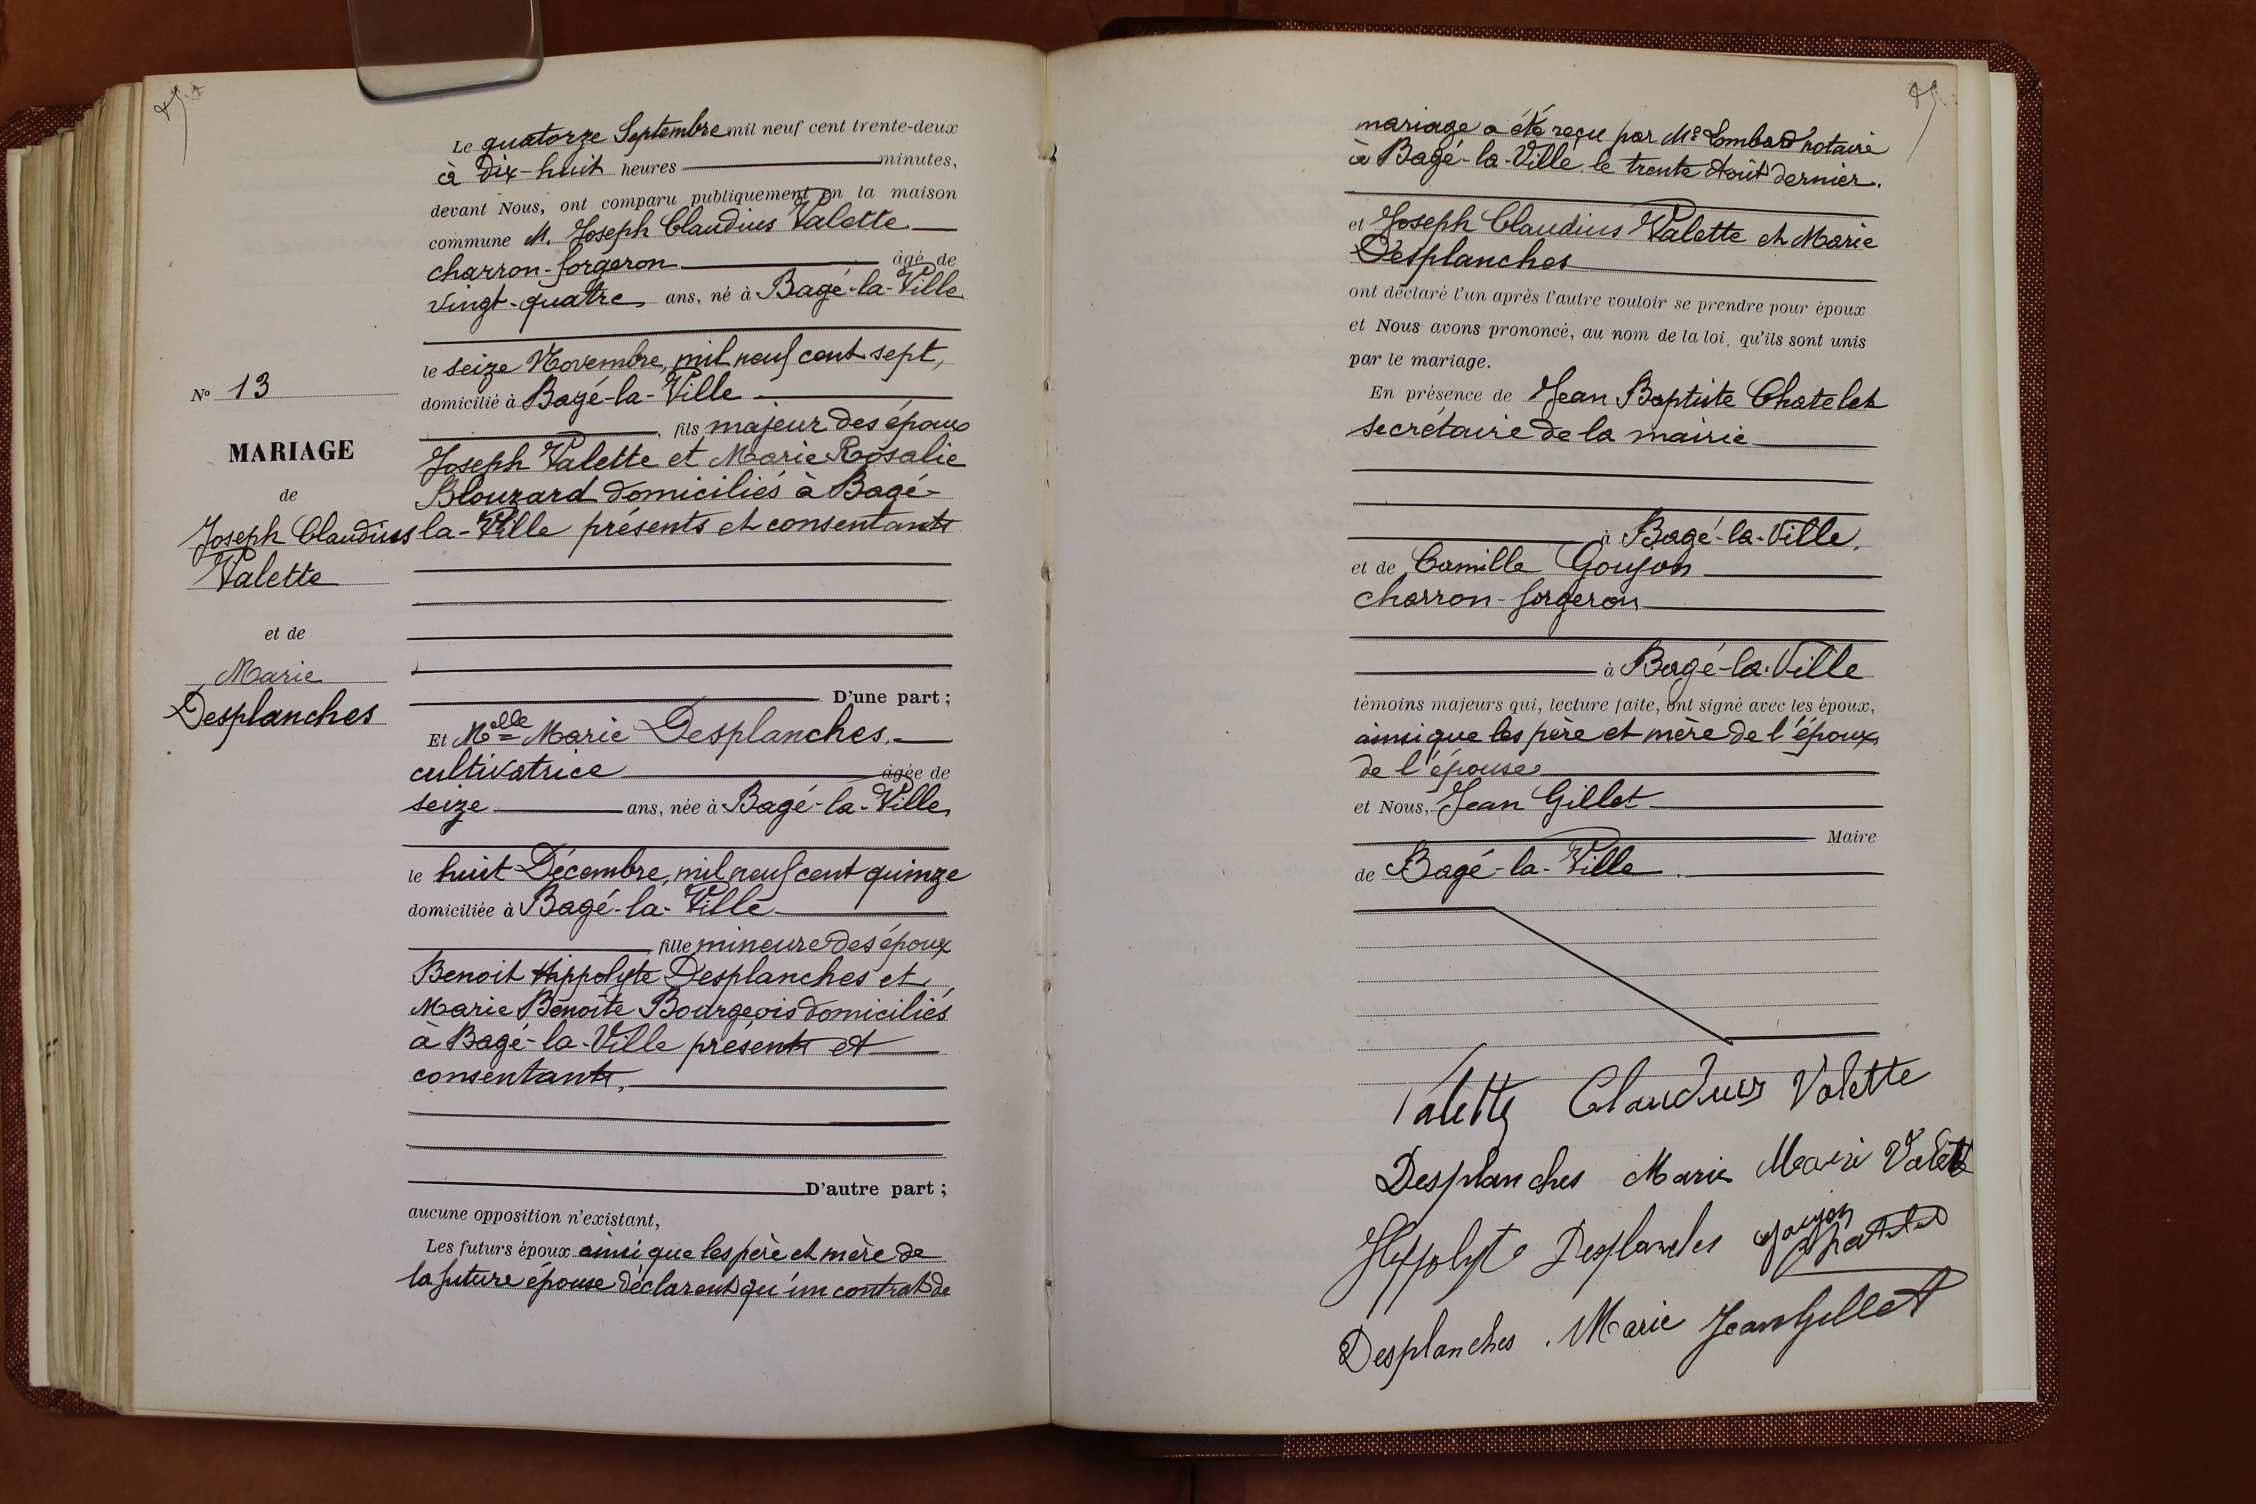 Le quatorze Septembre mil neuf cent trente-deux
à Dix-huit heures minutes,
devant Nous, ont comparu publiquement en la maison
commune M. Joseph Claudius Valette
charron-forgeron âgé de
vingt-quatre ans, né à Bagé-la-Ville
le seize Novembre, mil neuf cent sept,
domicilié à Bagé-la-Ville
, fils majeur des époux
Joseph Valette et Marie Rosalie
Blouzard domiciliés à Bagé-
la-Ville présents et consentants
D'une part ;
Et Melle Marie Desplanches,
cultivatrice âgée de
seize ans, née à Bagé-la-Ville,
le huit Décembre, mil neuf cent quinze
domiciliée à Bagé-la-Ville
, fille mineure des époux
Benoit Hippolyte Desplanches et
Marie Benoîte Bourgeois domiciliés
à Bagé-la-Ville présents et
consentants,
D'autre part ;
aucune opposition n'existant,
Les futurs époux ainsi que les père et mère de
la future épouse déclarent qu'un contrat de
No 13
MARIAGE
de
Joseph Claudius
Valette
et de
Marie
Desplanches
mariage a été reçu par Me Lombard notaire
à Bagé-la-Ville le trente Août dernier.
et Joseph Claudius Valette et Marie
Desplanches
ont déclaré l'un après l'autre vouloir se prendre pour époux
et Nous avons prononcé, au nom de la loi, qu'ils sont unis
par le mariage.
En présence de Jean Baptiste Chatelet
secrétaire de la mairie
à Bagé-la-Ville,
et de Camille Goujon
charron-forgeron
à Bagé-la-Ville
témoins majeurs qui, lecture faite, ont signé avec les époux,
ainsi que les père et mère de l'époux,
de l'épouse
et Nous, Jean Gillet
Maire
de Bagé-la-Ville.
Valette Claudius Valette
Desplanches Marie Marie Valette
Hippolyte Desplanches Goujon
Chatelet
Desplanches. Marie Jean Gillet